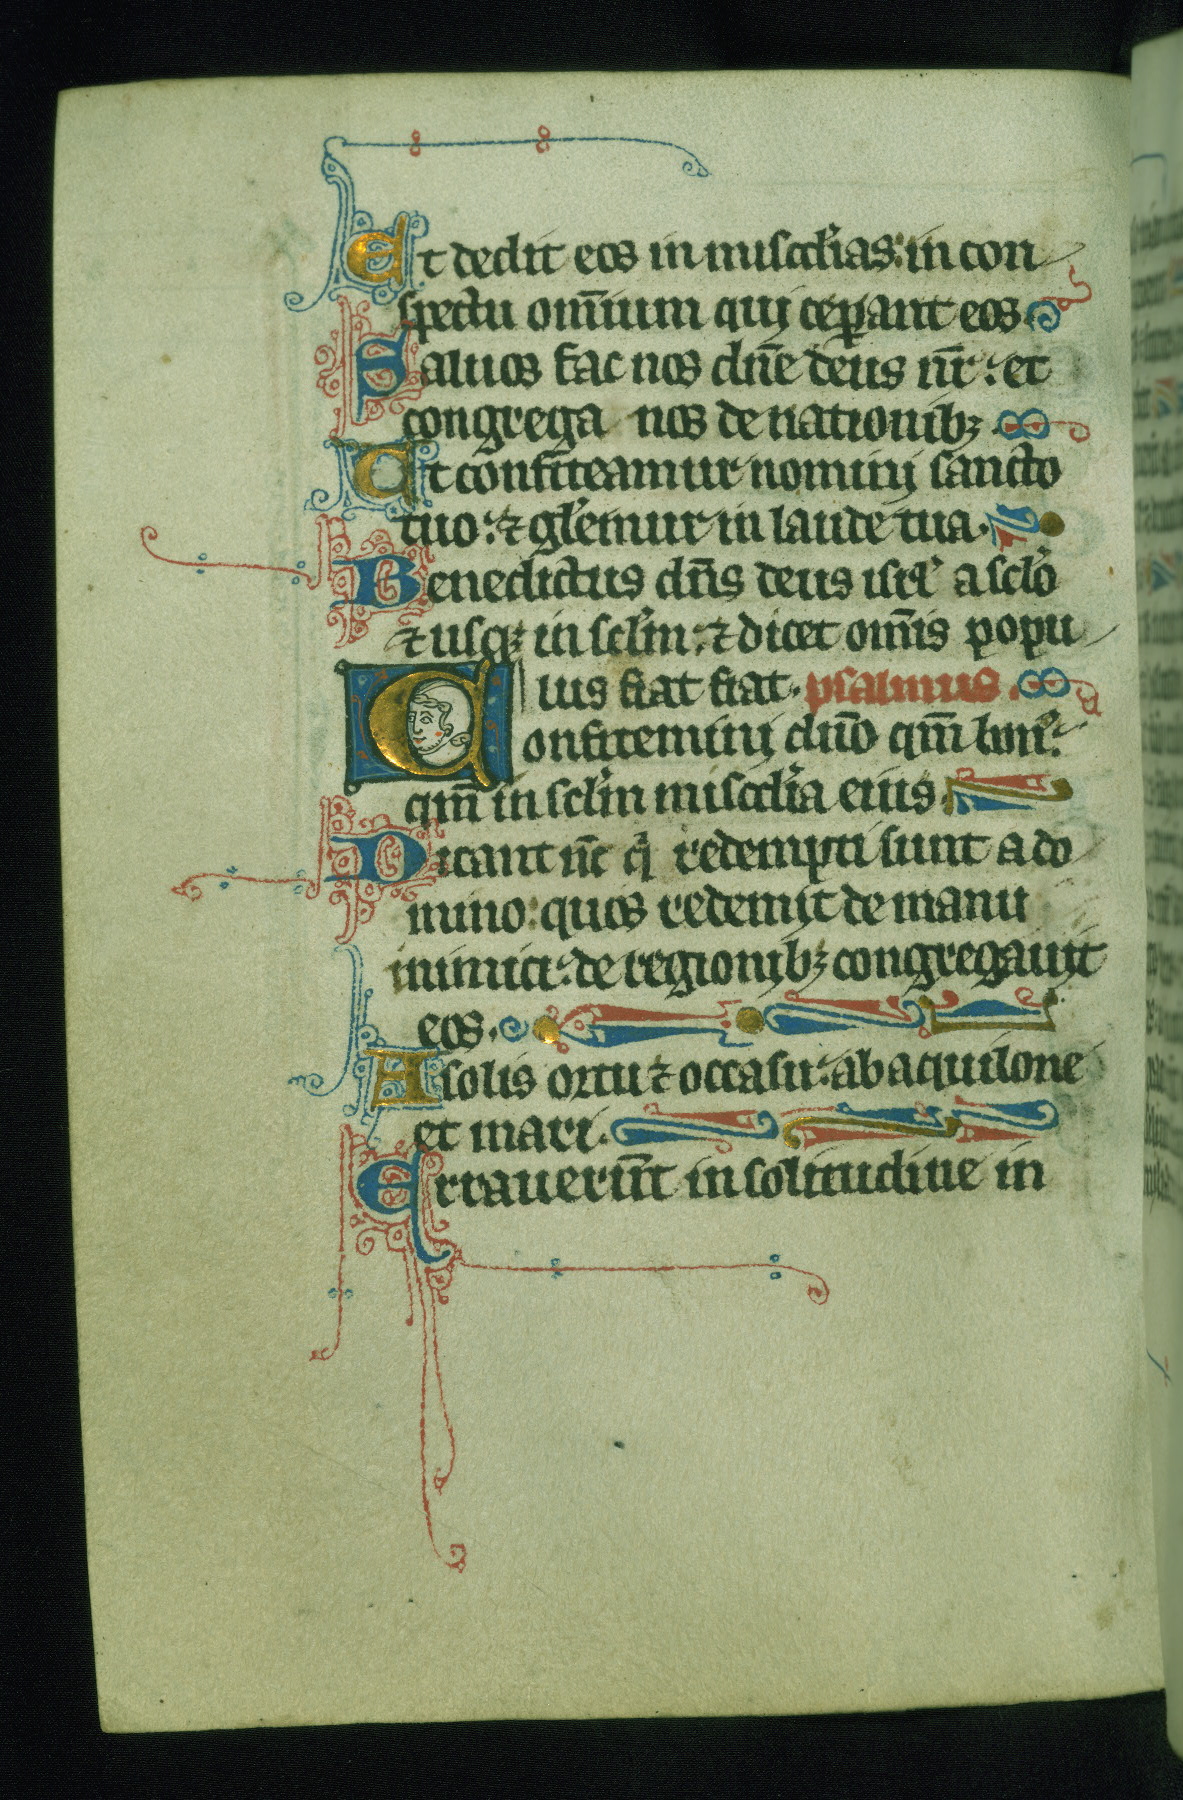 Et dedit eos in misc̄dias: in con
spectu om̄ium qui ceꝑant eos.
Saluos fac nos dn̄e deus nr̄: et
congrega nos de nationibꝫ.
Ut confiteamur nomini sancto
tuo: ⁊ gl̄emur in laude tua.
Benedictus dn̄s deus isrl̄ a sclo
⁊ usqꝫ in sclm̄: ⁊ dicet om̄is popu
lus fiat fiat. psalmus.
Confitemini dn̄o qm̄ bon:
qm̄ in sclm̄ misc̄dia eius.
Dicant nc̄ qi redempti sunt a do
mino: quos redemit de manu
inimici: de regionibꝫ congregauit
eos.
A solis ortu ⁊ occasu: ab aquilone
et mari.
Errauerūt in solitudine in